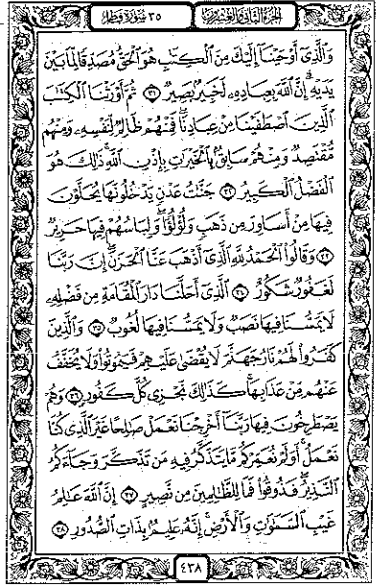 الجزء الثاني والعشرون ٣٥ سورة فاطر
وَٱلَّذِىٓ أَوْحَيْنَآ إِلَيْكَ مِنَ ٱلْكِتَٰبِ هُوَ ٱلْحَقُّ مُصَدِّقًا لِّمَا بَيْنَ
يَدَيْهِ إِنَّ ٱللَّهَ بِعِبَادِهِۦ لَخَبِيرٌۢ بَصِيرٌ ٣١ ثُمَّ أَوْرَثْنَا ٱلْكِتَٰبَ
ٱلَّذِينَ ٱصْطَفَيْنَا مِنْ عِبَادِنَا فَمِنْهُمْ ظَالِمٌ لِّنَفْسِهِۦ وَمِنْهُم
مُّقْتَصِدٌ وَمِنْهُمْ سَابِقٌۢ بِٱلْخَيْرَٰتِ بِإِذْنِ ٱللَّهِ ذَٰلِكَ هُوَ
ٱلْفَضْلُ ٱلْكَبِيرُ ٣٢ جَنَّٰتُ عَدْنٍ يَدْخُلُونَهَا يُحَلَّوْنَ
فِيهَا مِنْ أَسَاوِرَ مِن ذَهَبٍ وَلُؤْلُؤًا وَلِبَاسُهُمْ فِيهَا حَرِيرٌ
٣٣ وَقَالُوا۟ ٱلْحَمْدُ لِلَّهِ ٱلَّذِىٓ أَذْهَبَ عَنَّا ٱلْحَزَنَ إِنَّ رَبَّنَا
لَغَفُورٌ شَكُورٌ ٣٤ ٱلَّذِىٓ أَحَلَّنَا دَارَ ٱلْمُقَامَةِ مِن فَضْلِهِۦ
لَا يَمَسُّنَا فِيهَا نَصَبٌ وَلَا يَمَسُّنَا فِيهَا لُغُوبٌ ٣٥ وَٱلَّذِينَ
كَفَرُوا۟ لَهُمْ نَارُ جَهَنَّمَ لَا يُقْضَىٰ عَلَيْهِمْ فَيَمُوتُوا۟ وَلَا يُخَفَّفُ
عَنْهُم مِّنْ عَذَابِهَا كَذَٰلِكَ نَجْزِى كُلَّ كَفُورٍ ٣٦ وَهُمْ
يَصْطَرِخُونَ فِيهَا رَبَّنَآ أَخْرِجْنَا نَعْمَلْ صَٰلِحًا غَيْرَ ٱلَّذِى كُنَّا
نَعْمَلُ أَوَلَمْ نُعَمِّرْكُم مَّا يَتَذَكَّرُ فِيهِ مَن تَذَكَّرَ وَجَآءَكُمُ
ٱلنَّذِيرُ فَذُوقُوا۟ فَمَا لِلظَّٰلِمِينَ مِن نَّصِيرٍ ٣٧ إِنَّ ٱللَّهَ عَٰلِمُ
غَيْبِ ٱلسَّمَٰوَٰتِ وَٱلْأَرْضِ إِنَّهُۥ عَلِيمٌۢ بِذَاتِ ٱلصُّدُورِ ٣٨
٤٣٨